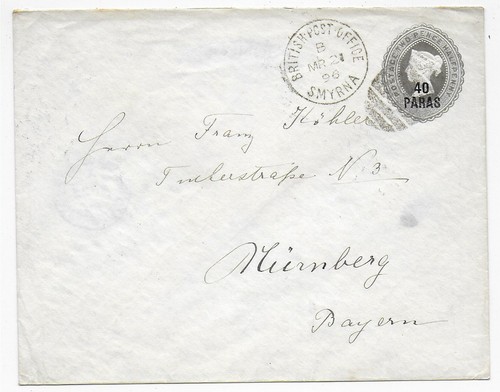 BRITISH·POST·OFFICE
B
MR 21
96
SMYRNA
POSTAGE TWO PENCE HALFPENNY
40
PARAS
Herrn Franz Köhler
Tucherstraße N. 3
Nürnberg
Bayern